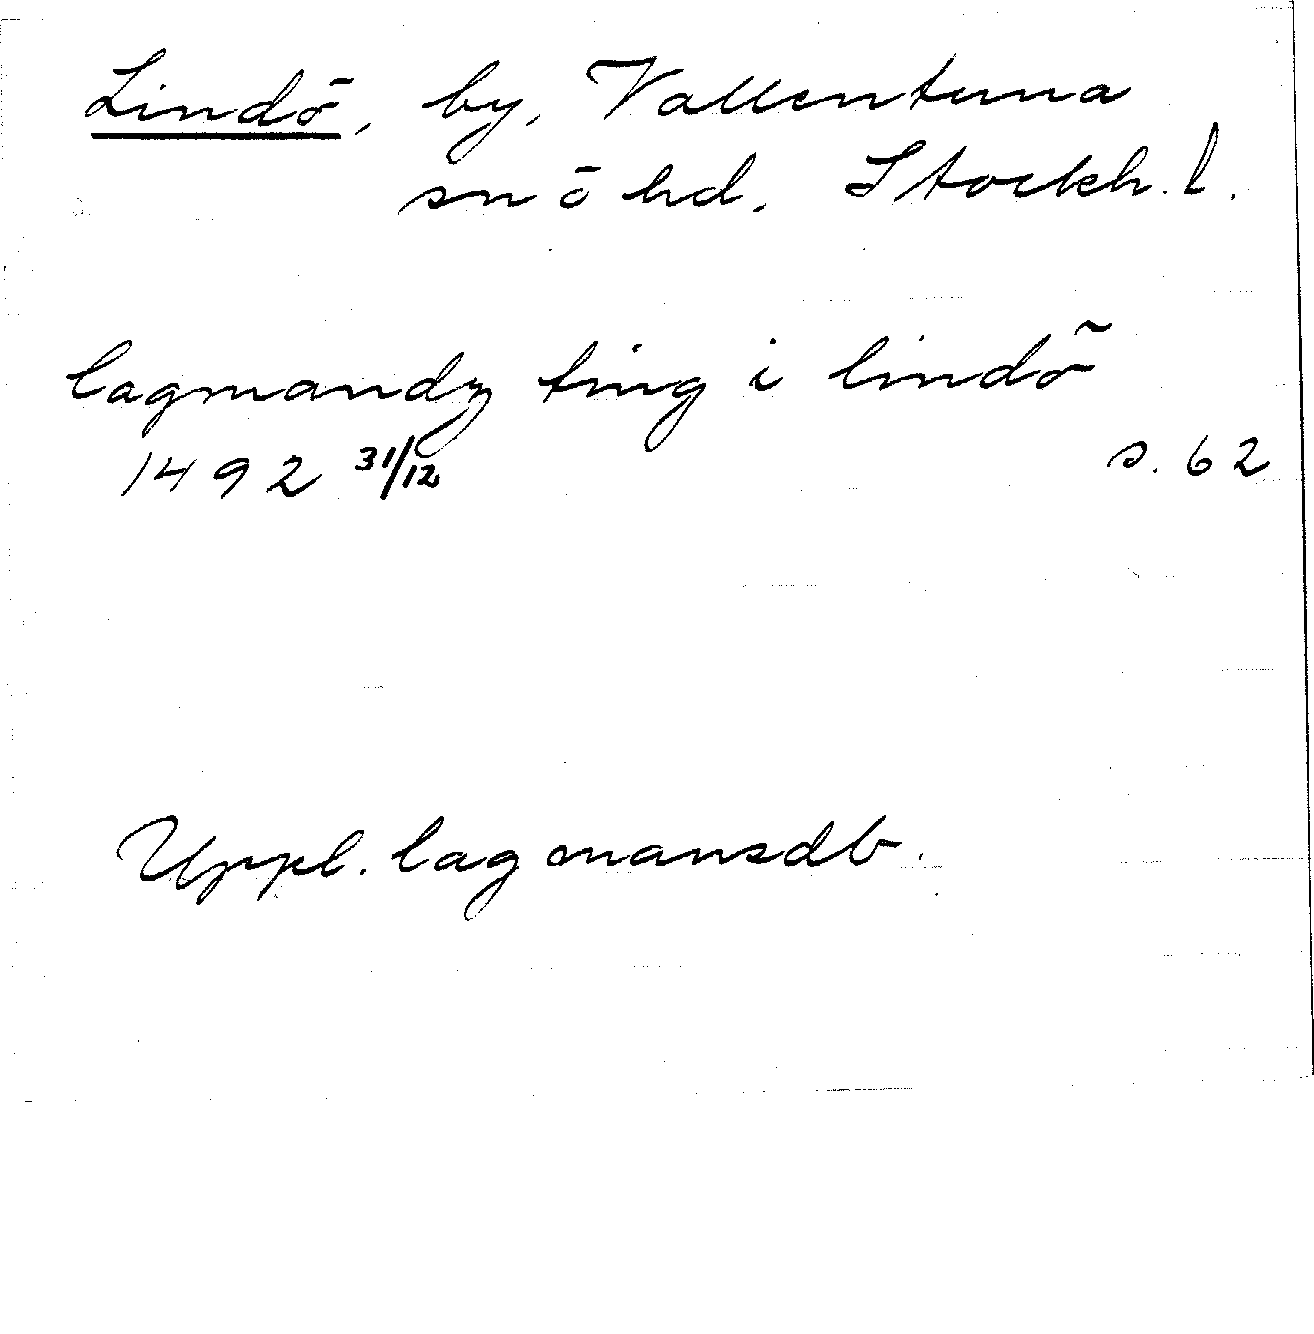 Lindö, by, Vallentuna
sn ö hd. Stockh. l.
lagmandz ting i lindö
1492 31/12 s. 62
Uppl. lagmansdb.